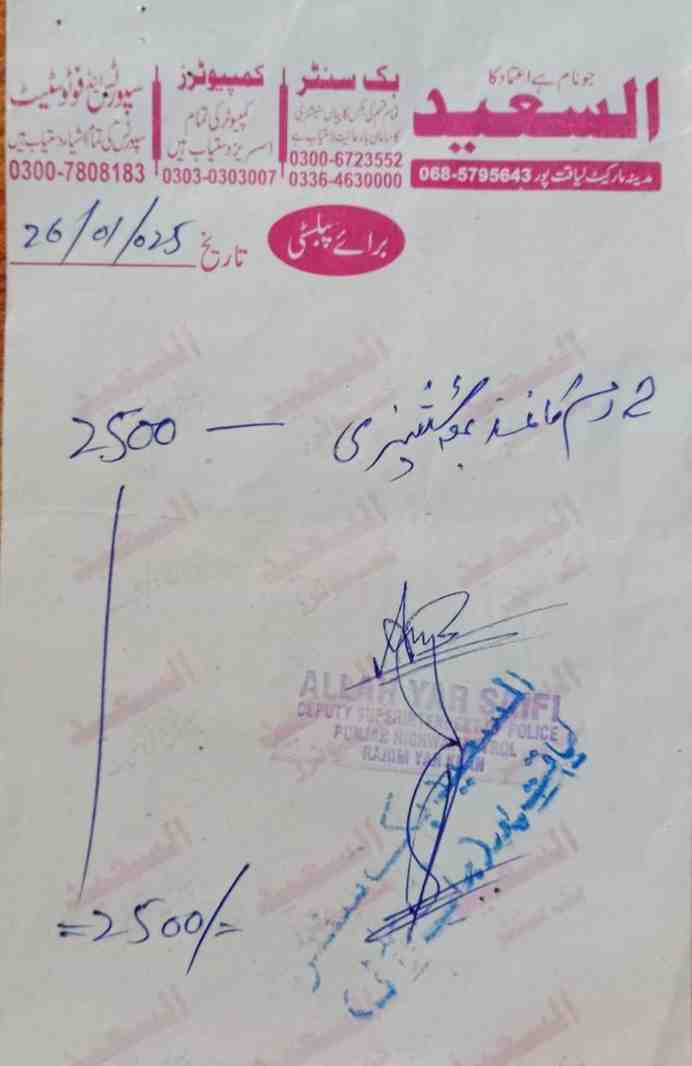 جو نام ہے اعتماد کا
السعید
مدینہ مارکیٹ لیاقت پور 068-5795643
بک سنٹر
0300-6723552
0336-4630000
کمپیوٹرز
کمپیوٹر کی تمام
اسسریز دستیاب ہیں
0303-0303007
سپورٹس اینڈ فوٹو سٹیٹ
سپورٹس کی تمام اشیاء دستیاب ہیں
0300-7808183
برائے پبلسٹی
تاریخ 26/01/025
2500 —
ALLAH YAR SAIFI
DEPUTY SUPERINTENDENT OF POLICE
PUNJAB HIGHWAY PATROL
RAHIM YAR KHAN
السعید بک سنٹر
=2500/=